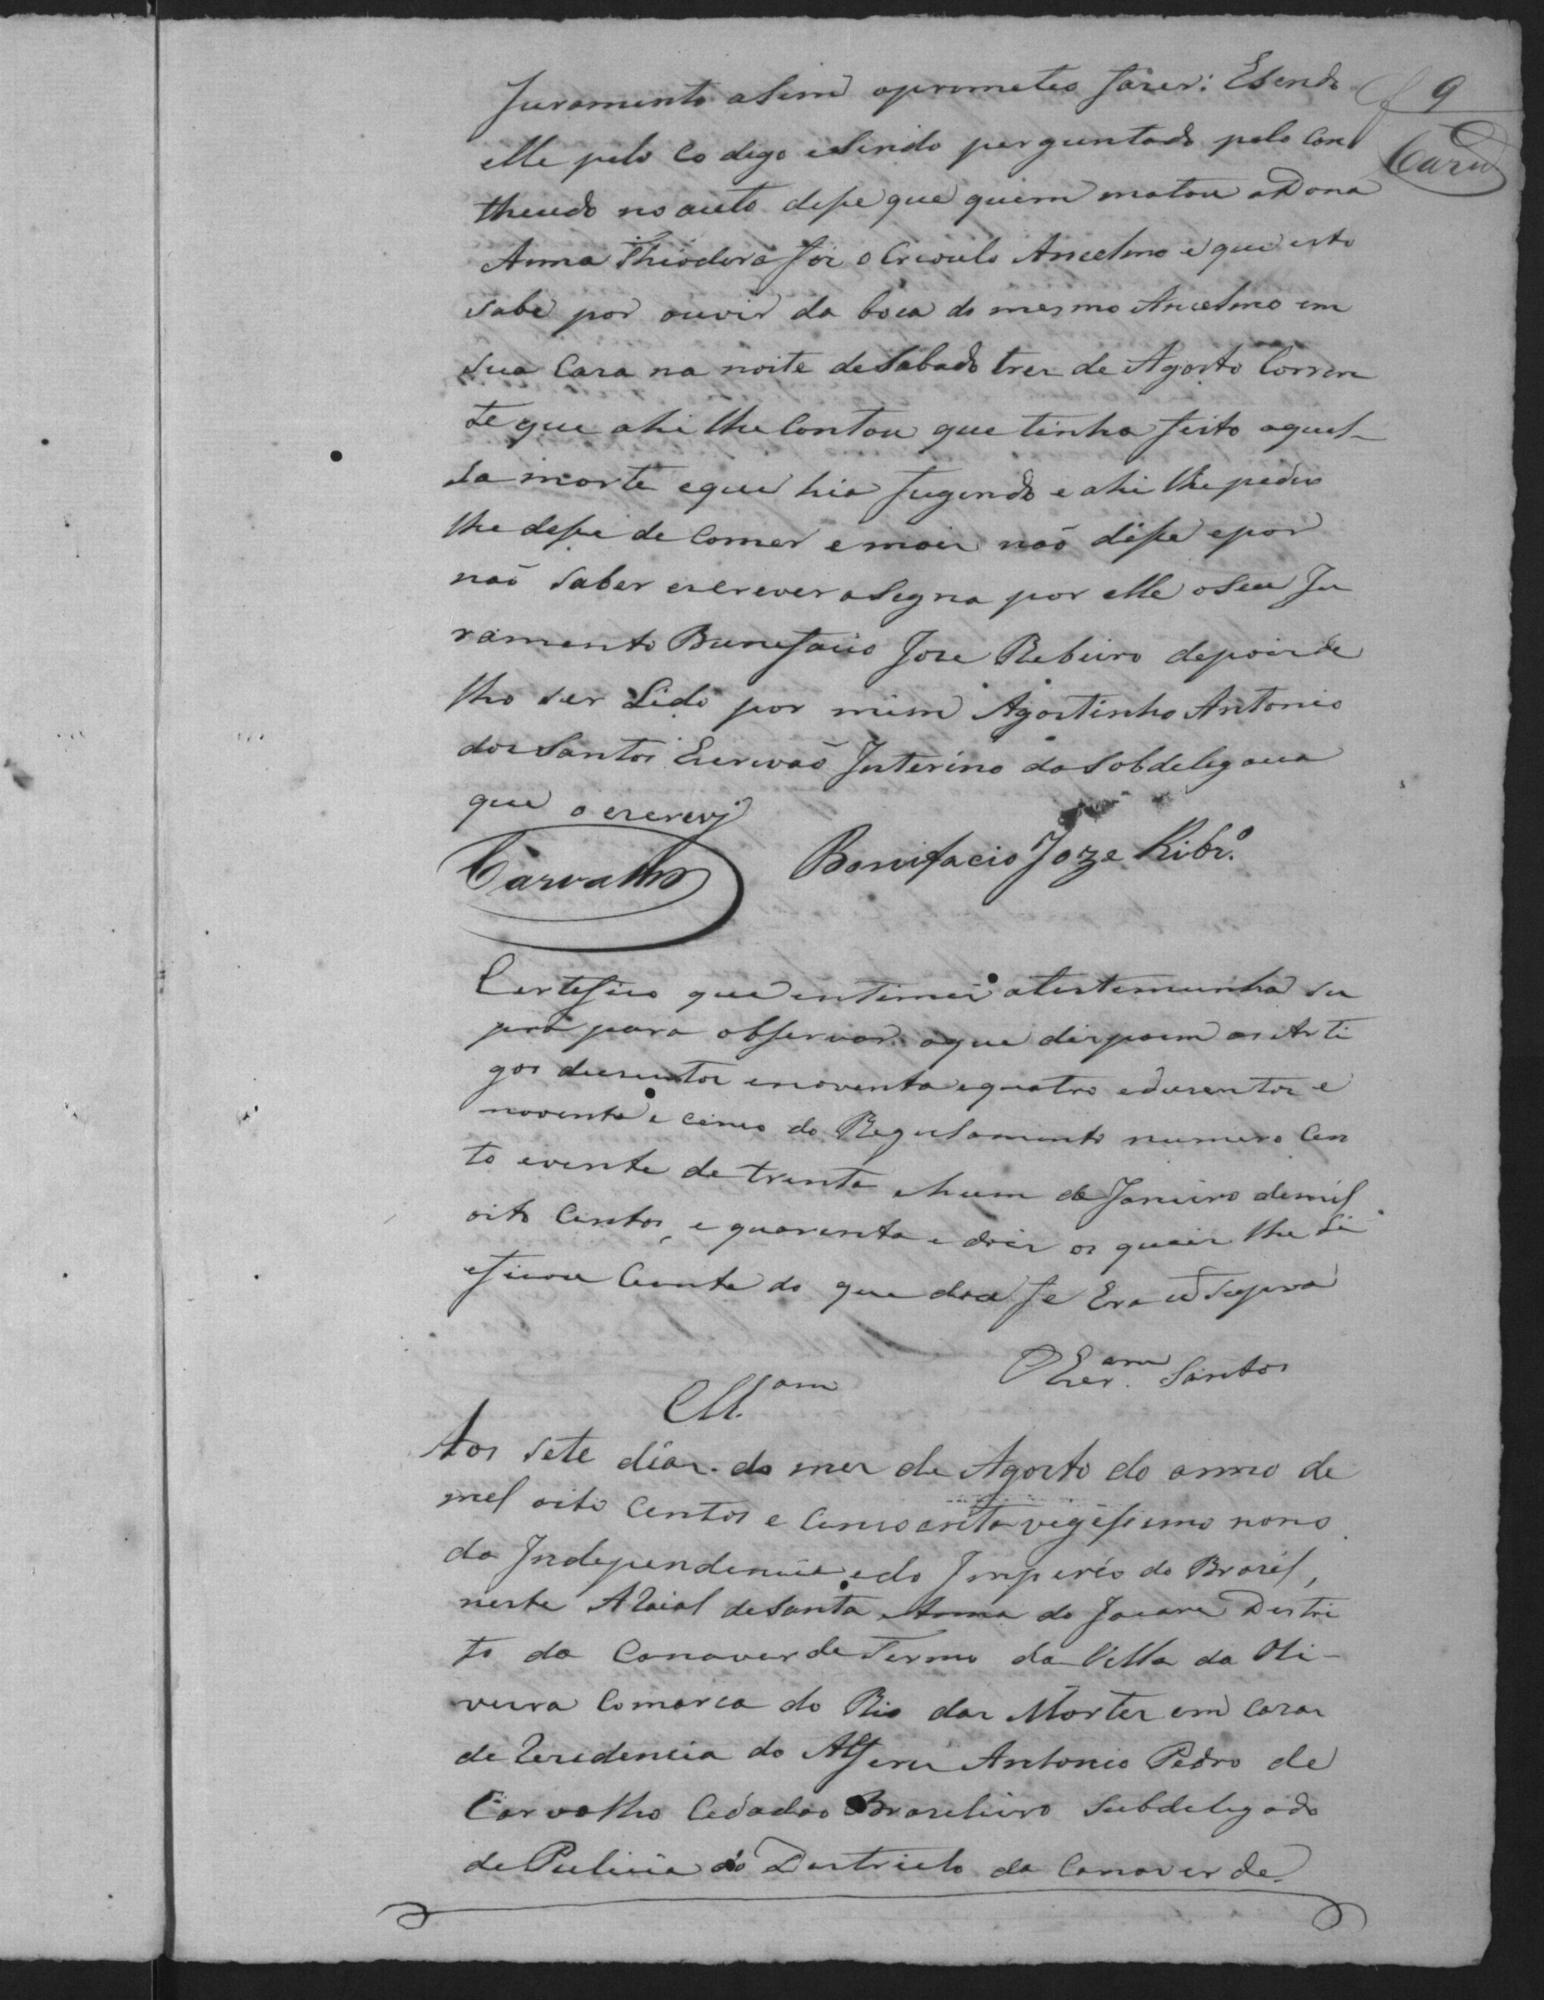 f 9
Carv.º
Juramento asim oprometeo fazer: Esendo
elle pelo Codego esendo perguntado pelo Con
theudo no auto disse que quem matou a Dona
Anna Theodora foi o Crioulo Ancelmo e que isto
sabe por ouvir da boca do mesmo Ancelmo em
sua Caza na noite de Sabado trez de Agosto Corren
te que ahi lhe Contou que tinha feito aquel-
la morte eque hia fugindo e ahi lhe pedio
lhe desse de Comer emais naõ disse epor
naõ saber escrever asigna por elle oseu Ju
ramento Bunefacio Joze Rebeiro depois de
lho ser Lido por mim Agostinho Antonio
dos Santos Escrivaõ Interino da Sobdelegacia
que o escrevj
Carvalho Bonifacio Joze Ribr.º
Certefico que entimei atestemunha su
pra para observar oque dispoem os Arti
gos duzentos enoventa equatro eduzentos e
noventa e cinco do Regulamento numero Cen
to evente de trenta ehum de Janeiro demil
oito Centos, e quarenta e dois os quais lhe Li
eficou Ciente do que dou fe Era ut Supra
O Escr.am Santos
Ill.am
Aos sete dias do mez de Agosto do anno de
mil oito Centos e Cincoenta vigessimo nono
da Independencia edo Imperio do Brazil,
neste Araial de Santa Anna do Jacare Destri
to da Canaverde Termo da Villa da Oli-
veira Comarca do Rio das Mortes em Cazas
de Rezidencia do Alferes Antonio Pedro de
Carvalho Cidadao Brazileiro Subdelegado
de Pulicia do Destricto da Canaverde